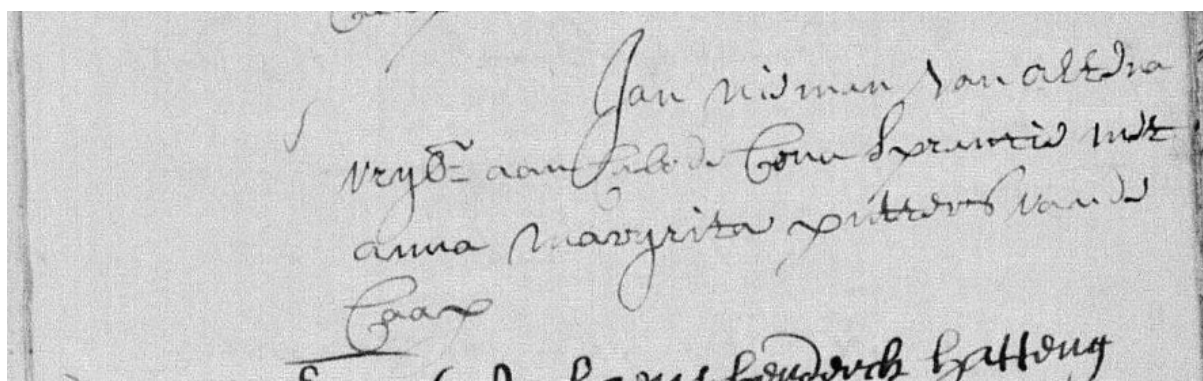 Jan Nieman van Altena
vryb^r= aan Cabo de Bone Sperantie met
anna margrita putters van de
Caap
hendrick hatting